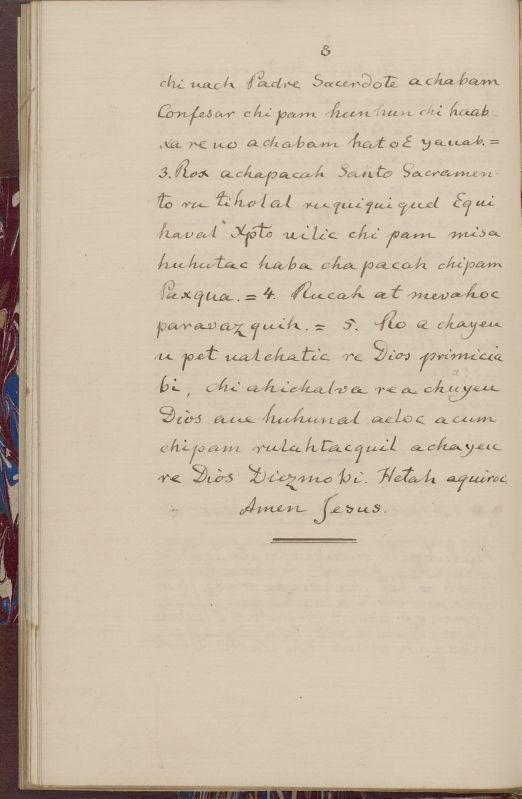 8
chi vach Padre Sacerdote achabam
Confesar chi pam hun hun chi haab
xa re uo achabam hatoƐ yauab. =
3. Rox achapacah Santo Sacramen-
to ru tiholal ruquiquiqud Equi
haval Xpto vilic chi pam misa
huhutac haba chapacah chipam
Paxqua. = 4. Rucah at mevahoc
paravaz quih. = 5. Ro a chayeu
u pet ualchatic re Dios primicia
bi, chi ahichalva re a chuyeu
Dios aue huhunal aeloc acum
chipam rulahtacquil achayeu
re Dios Diezmo bi. Hetah aquiroc
Amen Jesus.